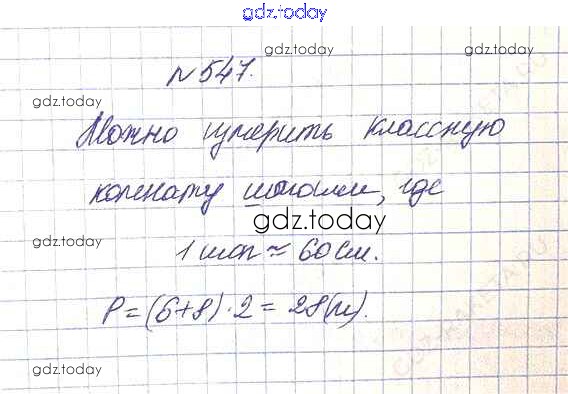 gdz.today
№547.
gdz.today
gdz.today
gdz.today
Можно измерить классную
комнату шагами, где
gdz.today
gdz.today
1 шаг ≈ 60 см.
P = (6+8) · 2 = 28 (м).
gdz.today